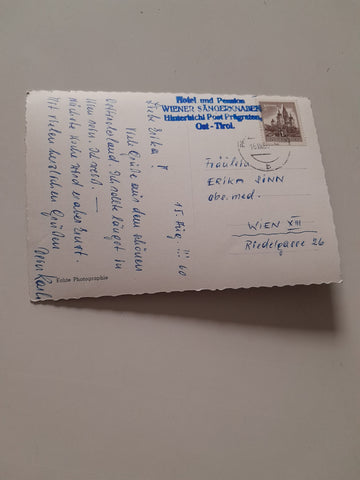 Hotel und Pension
WIENER SÄNGERKNABEN
Hinterbichl Post Prägraten,
Ost-Tirol.
15. Aug. !!! 60
Liebe Erika!
Viele Grüße aus dem schönen
Ich sollte längst in
Wien sein. Ich weiß. —
Nächste Woche wird es aber Ernst.
Mit vielen herzlichen Grüßen
Fräulein
ERIKA SINN
abs. med.
WIEN XII
Riedelgasse 26
Echte Photographie